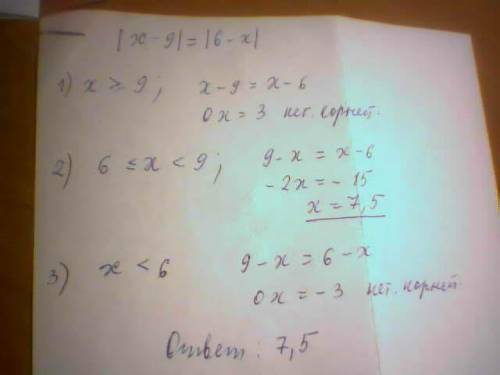 |x-9|=|6-x|
1) x ≥ 9; x-9 = x-6
0x = 3 нет. корней.
2) 6 ≤ x < 9; 9-x = x-6
-2x = -15
x = 7,5
3) x < 6 9-x = 6-x
0x = -3 нет. корней.
Ответ: 7,5